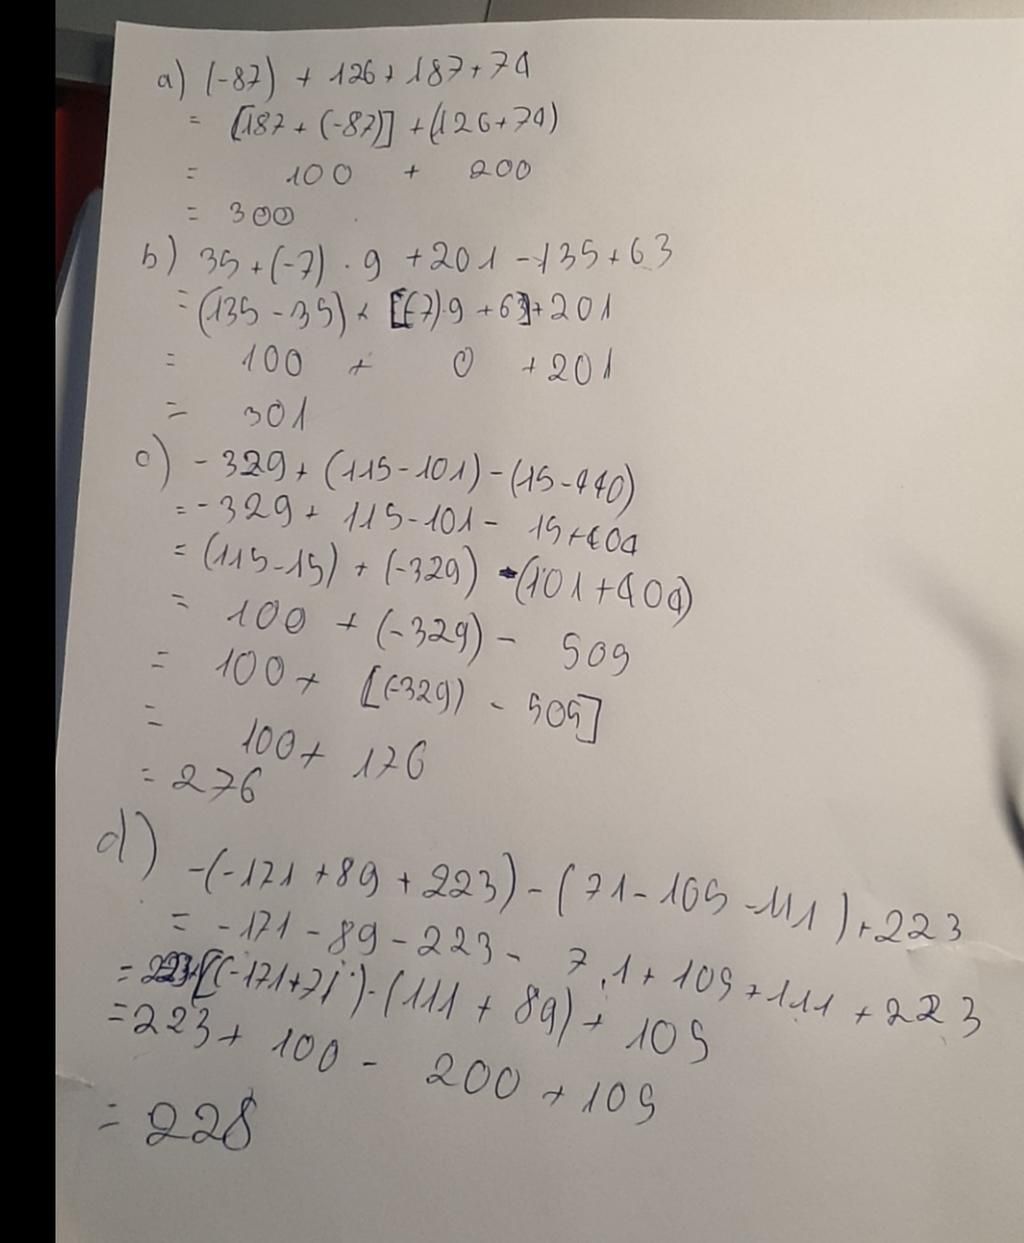 a) (-87) + 126 + 187 + 74
= [187 + (-87)] + (126 + 74)
= 100 + 200
= 300
b) 35 + (-7) . 9 + 201 - 135 + 63
= (135 - 35) + [(-7).9 + 63] + 201
= 100 + 0 + 201
= 301
c) - 329 + (115 - 101) - (15 - 440)
= - 329 + 115 - 101 - 15 + 404
= (115 - 15) + (-329) - (101 + 404)
= 100 + (-329) - 505
= 100 + [(-329) - 505]
= 100 + 176
= 276
d)
-(-171 + 89 + 223) - (71 - 105 - 111) + 223
= -171 - 89 - 223 - 71 + 105 + 111 + 223
= 223 + [(-171 + 71) - (111 + 89) + 105
= 223 + 100 - 200 + 105
= 228